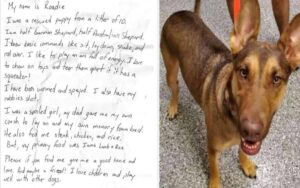 My name is Roadie
I was a rescued puppy from a litter of 10.
I am half German Shepherd, half Australian Shepherd.
I know basic commands like sit, lay down, shake, and
roll over. I like to play and am full of energy. I love
to chew on toys and tear them apart if it has a
squeaker!
I have been wormed and spayed. I also have my
rabbies shot.
I was a spoiled girl, my dad gave me my own
couch to lay on and my own memory foam bed.
He also fed me steak, chicken, and rice.
But, my primary food was Iams Lamb & Rice
Please if you find me give me a good home and
love. And maybe a friend! I love children and play
well with other dogs.